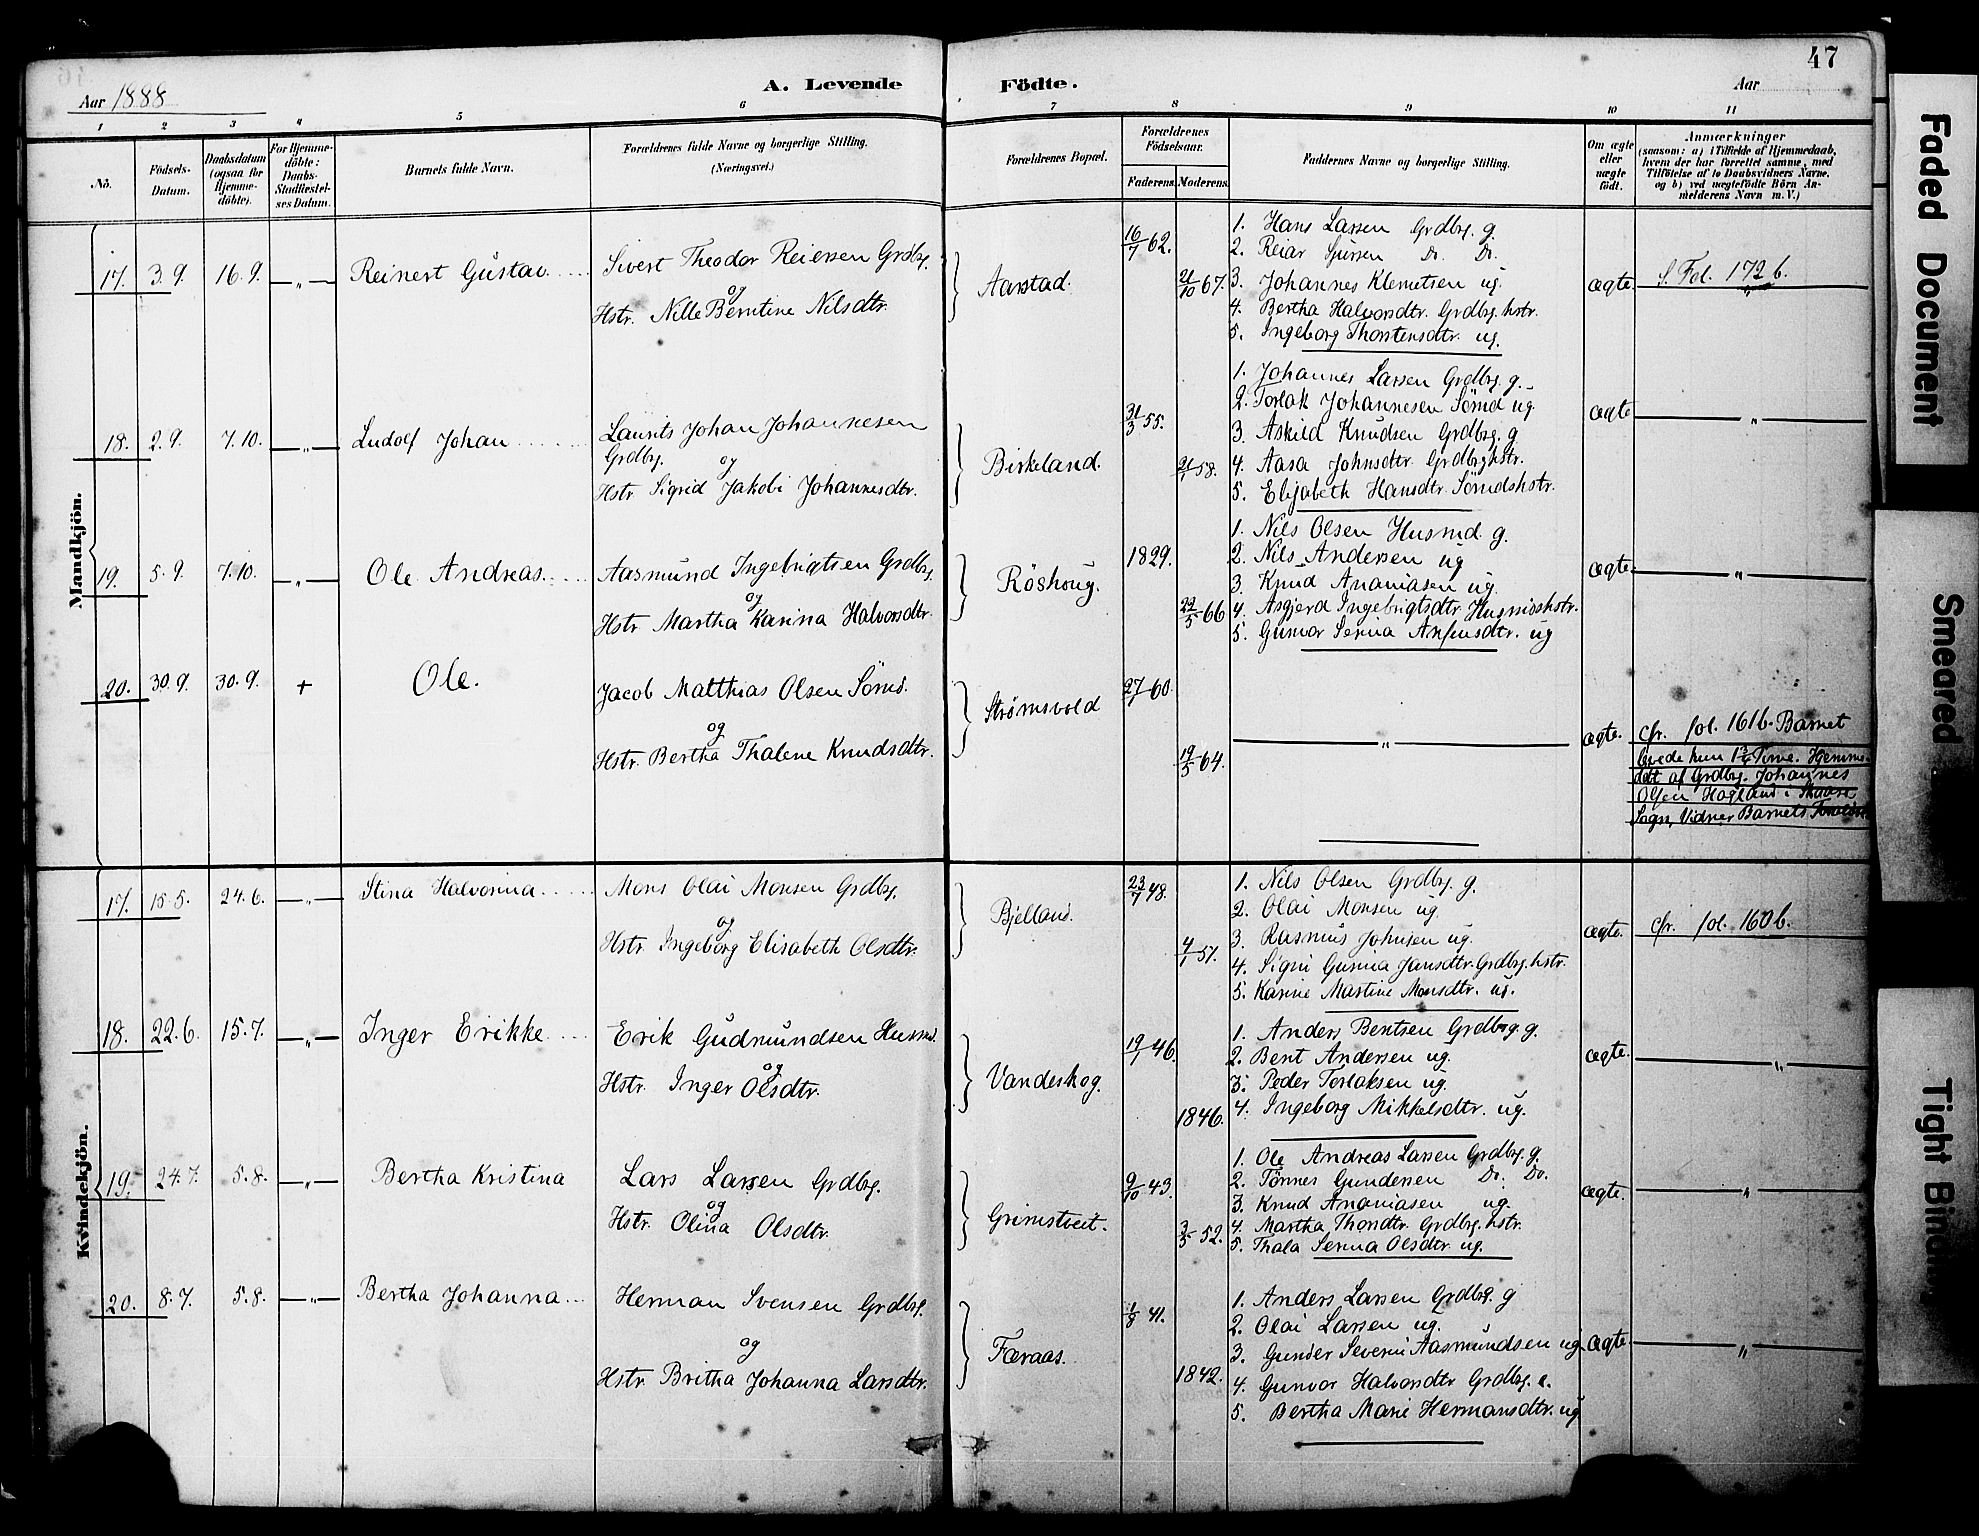 47
Aar 1888
A. Levende Födte.
Aar
1 2 3 4 5 6 7 8 9 10 11
No.
Födsels-Datum.
Daabsdatum (ogsaa for Hjemme-döbte).
For Hjemme-döbte: Daabs-Stadfæstel-ses Datum.
Barnets fulde Navn.
Forældrenes fulde Navne og borgerlige Stilling.
(Næringsvei.)
Forældrenes Bopæl.
Forældrenes Födselsaar.
Faderens. Moderens.
Faddernes Navne og borgerlige Stilling.
Om ægte eller uægte födt.
Anmærkninger
(saasom: a) i Tilfælde af Hjemmedaab,
hvem der har forrettet samme, med
Tilföielse af to Daabsvidners Navne,
og b) ved uægtefödte Börn An-
melderens Navn m. V.)
Mandkjön.
17. 3.9. 16.9. — „ — Reinert Gustav
Sivert Theodor Reiersen Grdbr.
og
Hstr. Nille Berntine Nilsdtr.
Aarstad.
16/7 62.
21/10 67.
1. Hans Larsen Grdbg. g.
2. Reiar Sjursen Do. Do.
3. Johannes Klemetsen ug.
4. Bertha Halvorsdtr. Grdbg. hstr.
5. Ingeborg Thorstensdtr. ug.
ægte.
S. Fol. 172 b.
18. 2.9. 7.10. — „ — Ludolf Johan
Laurits Johan Johannesen
Grdbg.
og
Hstr Sigrid Jakobi Johannesdtr.
Birkeland.
31/3 55.
21/1 58.
1. Johannes Larsen Grdbg. g.
2. Torlak Johannesen Sömd ug.
3. Askild Knudsen Grdbg. g
4. Aasa Johnsdtr. Grdbg hstr.
5. Elisabeth Hansdtr Sömdshstr.
ægte
„
19. 5.9. 7.10. — „ — Ole Andreas
Aasmund Ingebrigtsen Grdbg.
og
Hstr Martha Karina Halvorsdtr.
Röshoug.
1829.
22/5 66
1. Nils Olsen Husmd. g.
2. Nils Andersen ug
3. Knud Ananiasen ug.
4. Asgjerd Ingebrigtsdtr Husmdshstr.
5. Gunvor Serina Anfinsdtr. ug
ægte
„
20. 30.9. 30.9. + Ole.
Jacob Matthias Olsen Sömd.
og
Hstr. Bertha Thalene Knudsdtr.
Strömsvold
27/1 60.
19/5 64.
„
ægte.
cfr. fol. 161 b. Barnet
levede kun 1 3/4 Time. Hjemme-
döbt af Grdbg. Johannes
Olsen Hogland i
Sogn, Vidner Barnets
Kvindekjön.
17. 15.5. 24.6. — „ — Stina Halvorina
Mons Olai Monsen Grdbg.
og
Hstr Ingeborg Elisabeth Olsdtr.
Bjelland.
23/7 48.
4/1 51.
1. Nils Olsen Grdbg. g.
2. Olai Monsen ug.
3. Rasmus Johnsen ug.
4. Sigri Gurina Jansdtr. Grdbg. hstr.
5. Karine Martine Monsdtr. ug.
ægte.
cfr. fol. 160 b.
18. 22.6. 15.7. — „ — Inger Erikke
Erik Gudmundsen Husmd.
og
Hstr. Inger Olsdtr.
Vandeskog.
19/1 46.
1846.
1. Anders Bentsen Grdbg. g.
2. Bent Andersen ug.
3. Peder Torlaksen ug.
4. Ingeborg Mikkelsdtr. ug.
ægte.
„
19. 24.7. 5.8. — „ — Bertha Kristina
Lars Larsen Grdbg.
og
Hstr. Olina Olsdtr.
Grimstveit.
9/10 43.
3/5 52.
1. Ole Andreas Larsen Grdbg. g.
2. Tönnes Gundersen Do. Do.
3. Knud Ananiasen ug.
4. Martha Thorsdtr. Grdbg. hstr.
5. Thala Serina Olsdtr ug.
ægte.
„
20. 8.7. 5.8. — „ — Bertha Johanna
Herman Svensen Grdbg.
og
Hstr. Britha Johanna Larsdtr.
Færaas.
1/8 41.
1842.
1. Anders Larsen Grdbg. g
2. Olai Larsen ug.
3. Gunder Severin Aasmundsen ug
4. Gunvor Halvorsdtr Grdbg. e.
5. Bertha Marie Hermansdtr. ug
ægte
„
Faded Document
Smeared
Tight Bindin